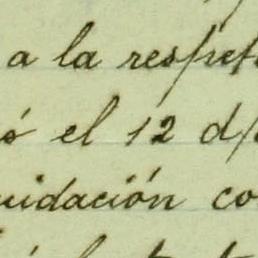 a la respe
ó el 12 d/
uidación co